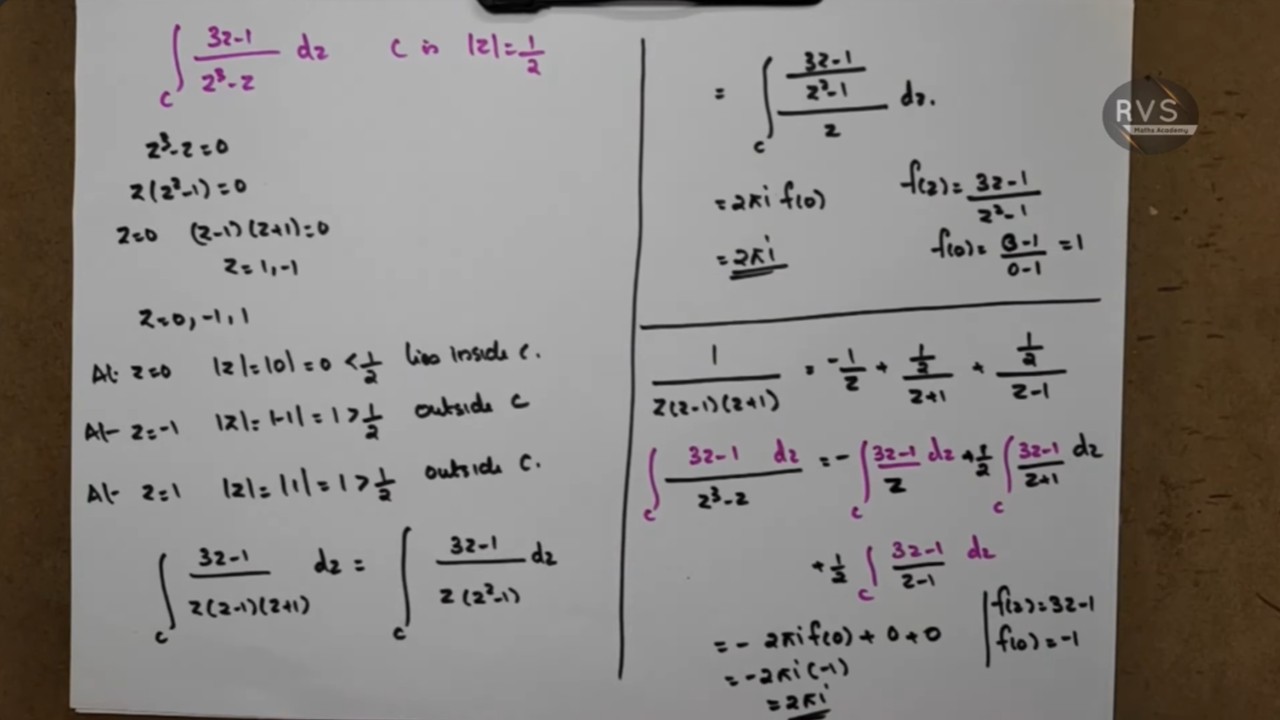 ∫_C (3z-1)/(z³-z) dz   C is |z|=1/2
z³-z=0
z(z²-1)=0
z=0   (z-1)(z+1)=0
z=1,-1
z=0,-1,1
At z=0   |z|=|0|=0<1/2   lies inside C.
At z=-1   |z|=|-1|=1>1/2   outside C
At z=1   |z|=|1|=1>1/2   outside C.
∫_C (3z-1)/(z(z-1)(z+1)) dz = ∫_C (3z-1)/(z(z²-1)) dz
= ∫_C ((3z-1)/(z²-1))/z dz.
=2πi f(0)   f(z)=(3z-1)/(z²-1)
=2πi   f(0)=(0-1)/(0-1)=1
1/(z(z-1)(z+1)) = -1/z + (1/2)/(z+1) + (1/2)/(z-1)
∫_C (3z-1 dz)/(z³-z) = -∫_C (3z-1)/z dz + 1/2 ∫_C (3z-1)/(z+1) dz
+ 1/2 ∫_C (3z-1)/(z-1) dz
f(z)=3z-1
= - 2πi f(0) + 0 + 0   f(0)=-1
= -2πi(-1)
= 2πi
RVS
Maths Academy